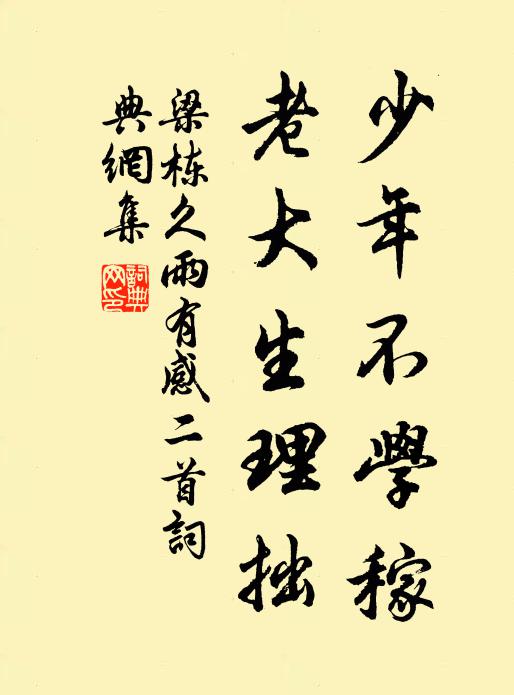 少年不學稼
老大生理拙
梁栋久雨有感二首詞
典網集
詞典网印